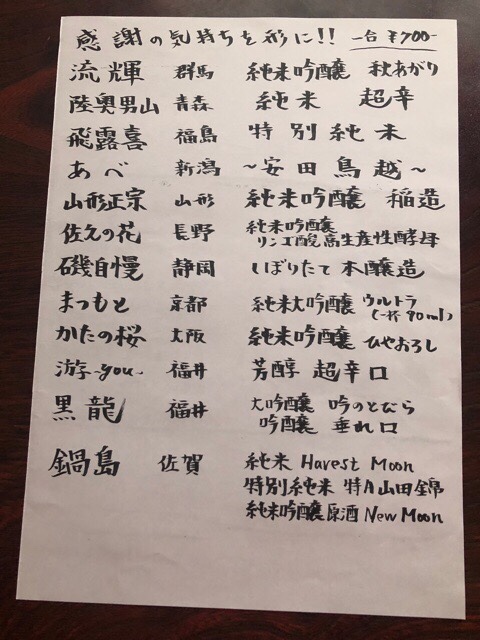 感謝の気持ちを形に!! 一合 ¥700-
流輝 群馬 純米吟醸 秋あがり
陸奥男山 青森 純米 超辛
飛露喜 福島 特別純米
あべ 新潟 〜安田鳥越〜
山形正宗 山形 純米吟醸 稲造
佐久の花 長野 純米吟醸
リンゴ酸高生産性酵母
磯自慢 静岡 しぼりたて 本醸造
まつもと 京都 純米大吟醸 ウルトラ
(一杯90ml)
かたの桜 大阪 純米吟醸 ひやおろし
游-you- 福井 芳醇 超辛口
黒龍 福井 大吟醸 吟のとびら
吟醸 垂れ口
鍋島 佐賀 純米 Harvest Moon
特別純米 特A山田錦
純米吟醸原酒 New Moon